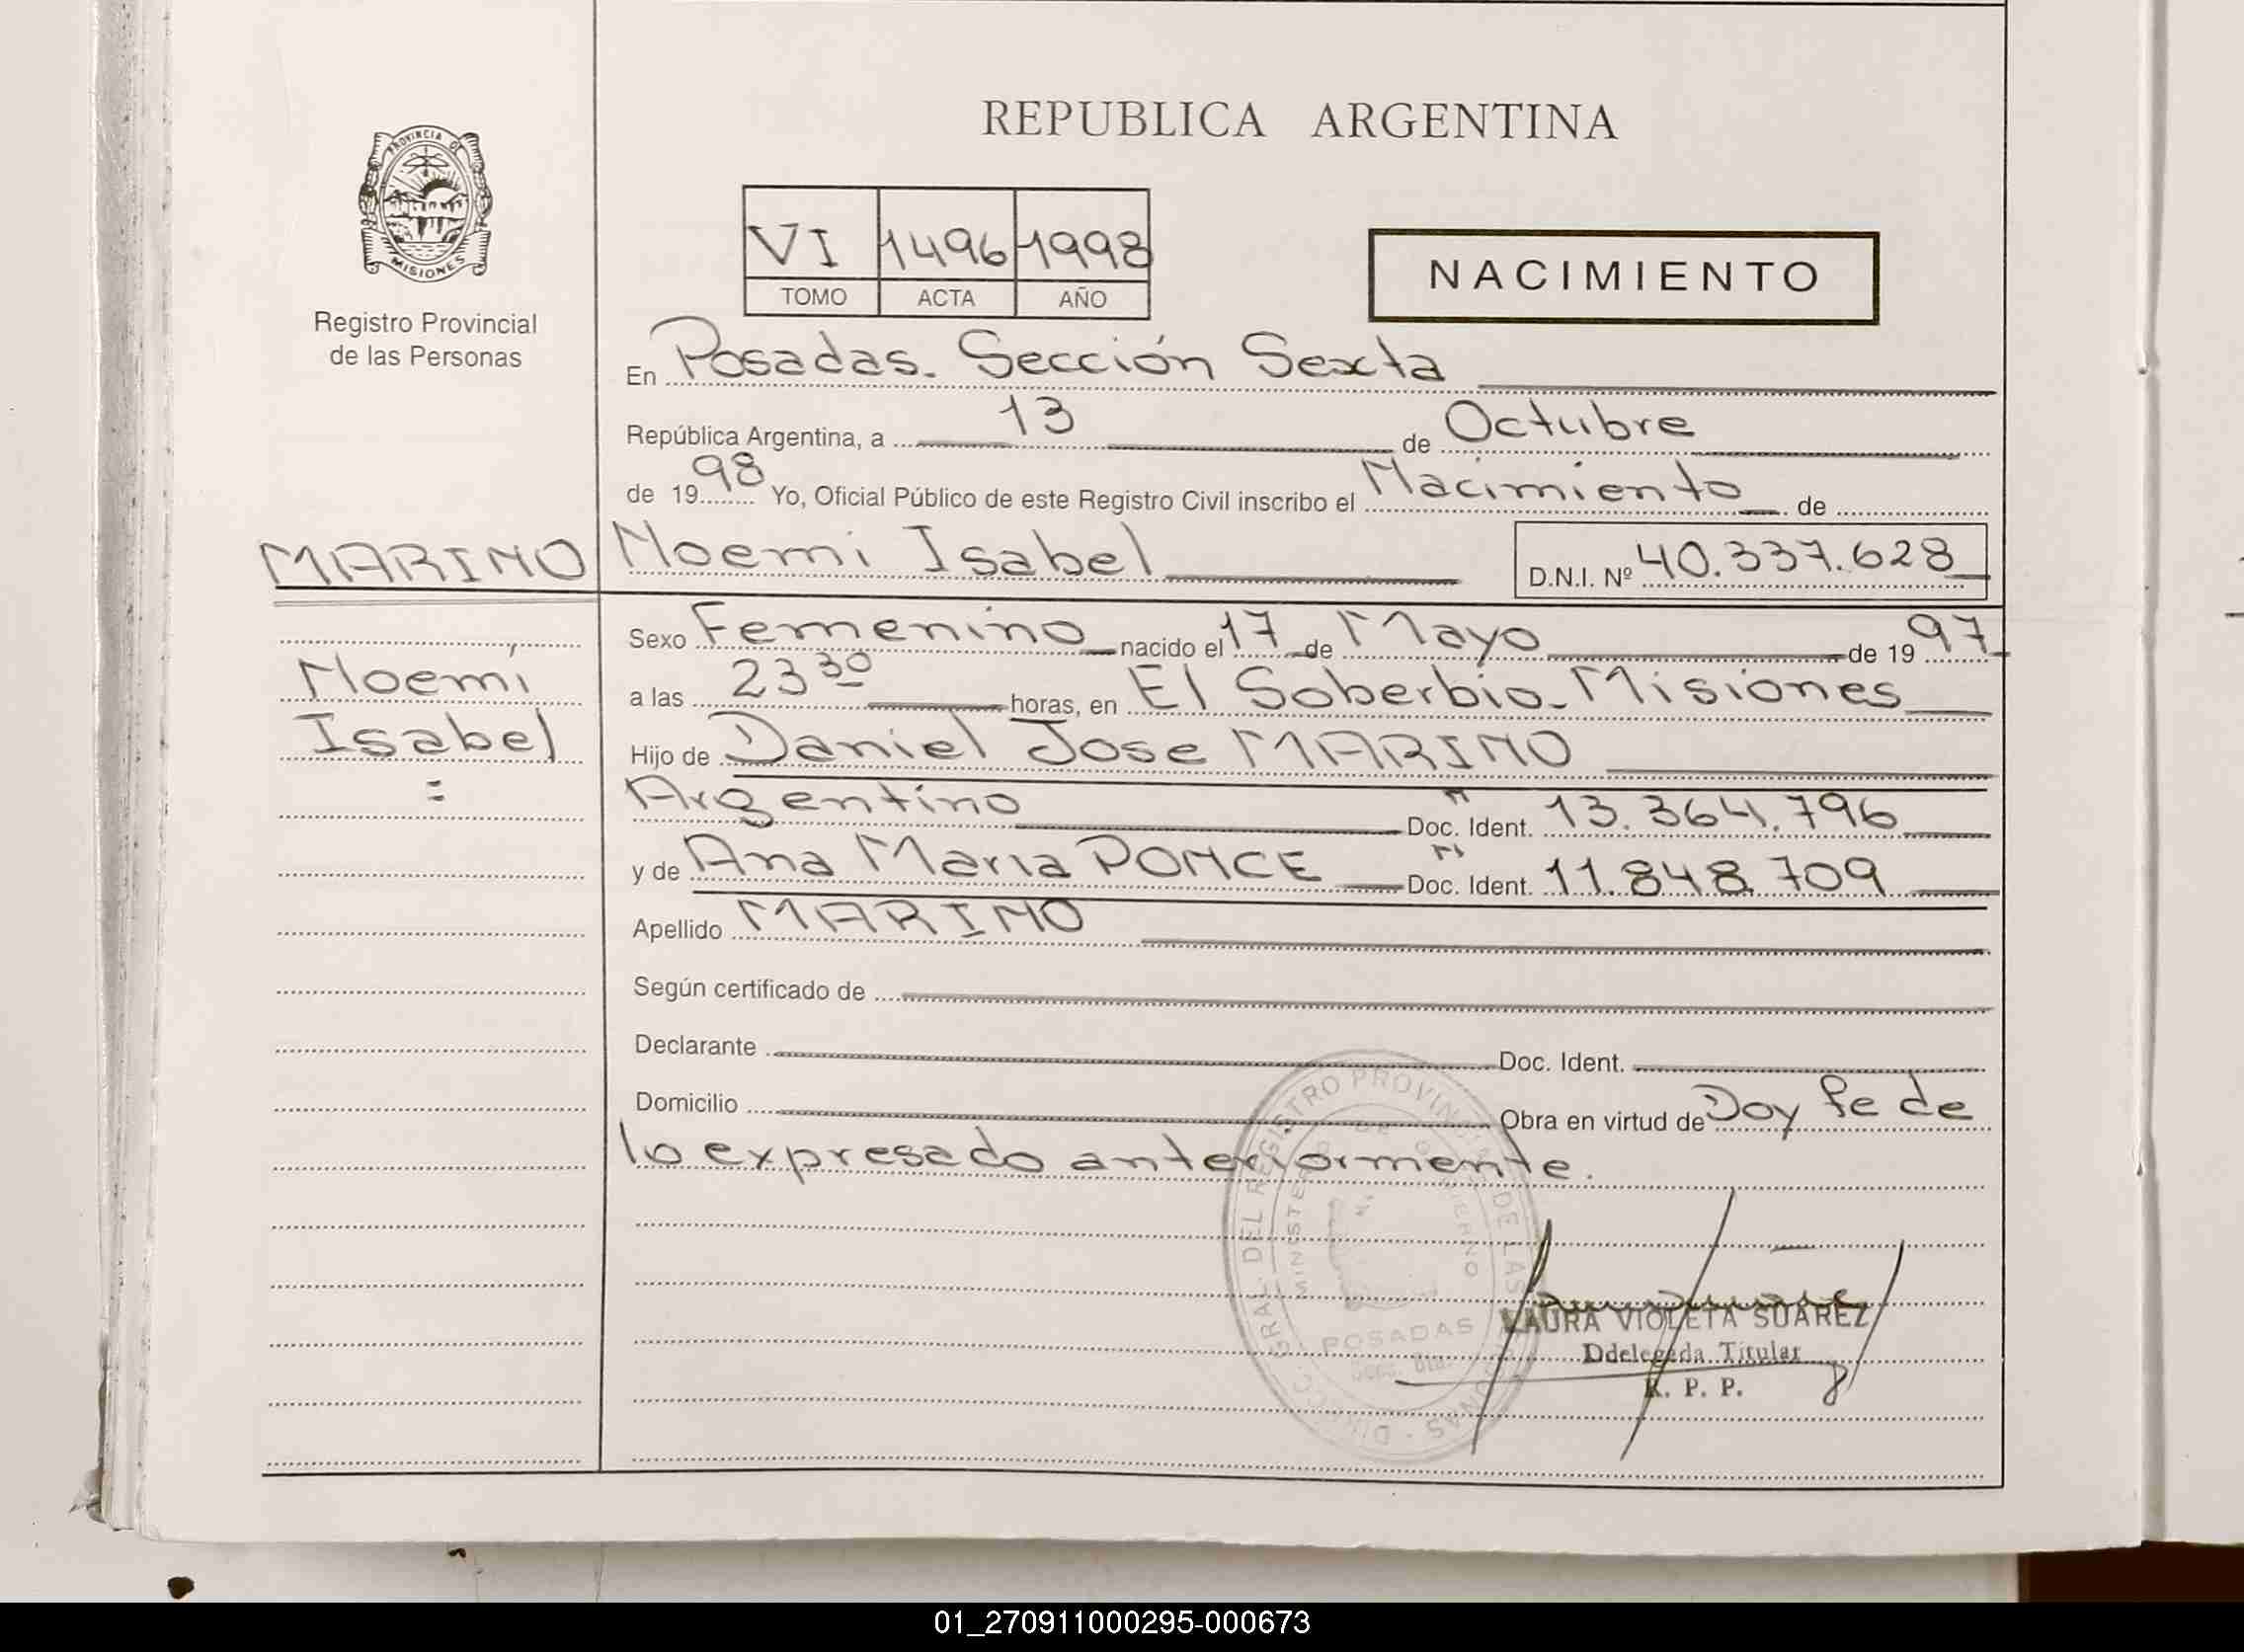 REPUBLICA ARGENTINA
PROVINCIA DE
MISIONES
Registro Provincial
de las Personas
VI 1496 1998
TOMO ACTA AÑO
NACIMIENTO
En Posadas. Sección Sexta
República Argentina, a 13 de Octubre
de 1998 Yo, Oficial Público de este Registro Civil inscribo el Nacimiento de
MARINO Noemi Isabel D.N.I. Nº 40.337.628
Sexo Femenino nacido el 17 de Mayo de 1997
Noemí
a las 23 30 horas, en El Soberbio - Misiones
Isabel
Hijo de Daniel Jose MARINO
=
Argentino Doc. Ident. 13.364.796
y de Ana Maria PONCE Doc. Ident. 11.848.709
Apellido MARINO
Según certificado de
Declarante Doc. Ident.
Domicilio Obra en virtud de Doy fe de
lo expresado anteriormente.
DIRECC. GRAL. DEL REGISTRO PROVINCIAL DE LAS PERSONAS
MINISTERIO DE GOBIERNO
POSADAS
LAURA VIOLETA SUAREZ
Ddelegada Titular
R. P. P.
01_270911000295-000673